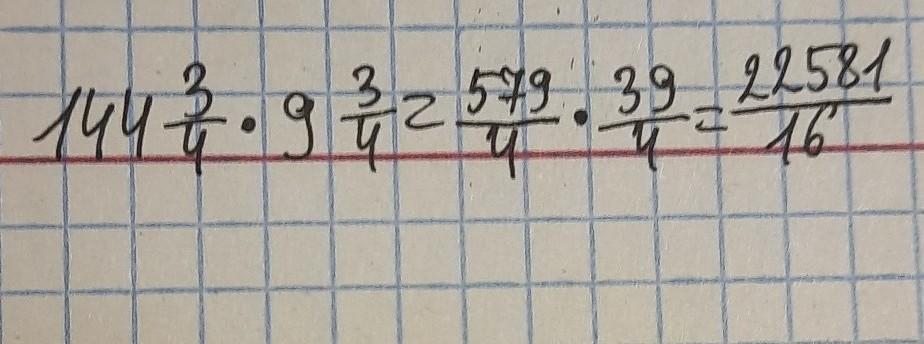 144 3/4 · 9 3/4 = 579/4 · 39/4 = 22581/16